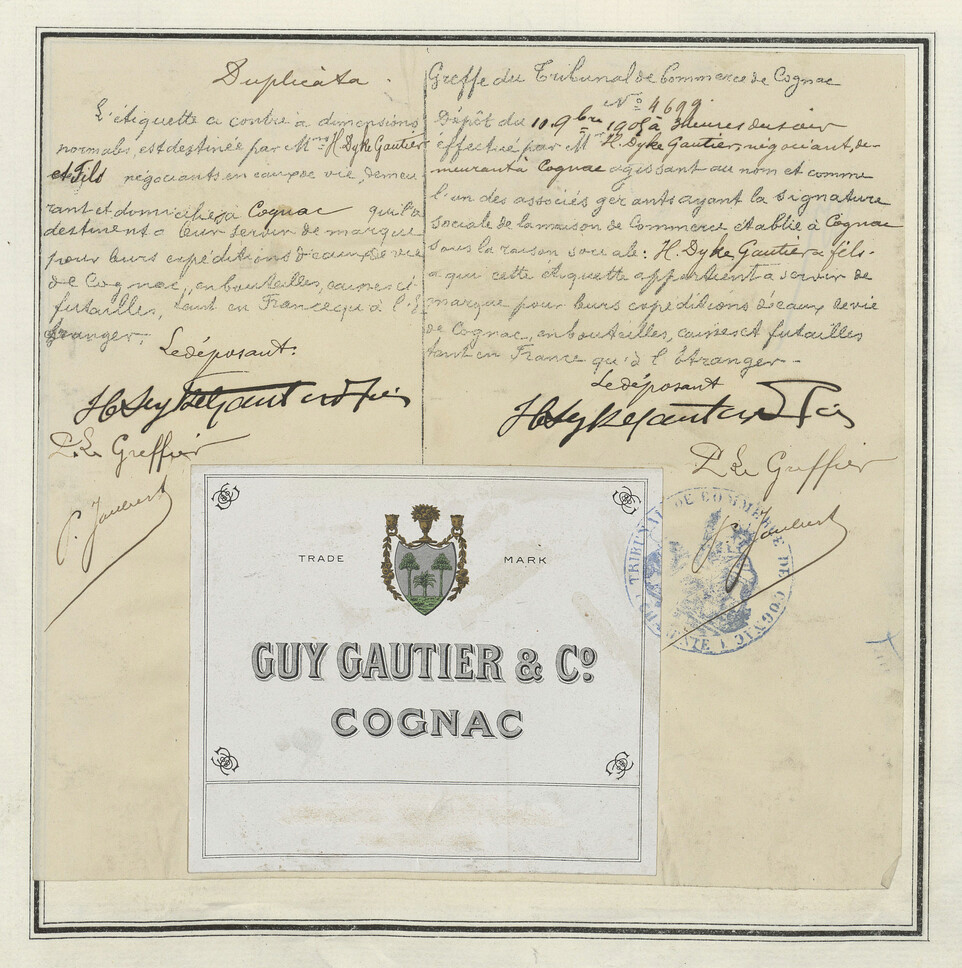 Duplicata.
L'étiquette ci contre à dimensions
normales, est destinée par Mrs H. Dyke Gautier
et Fils négociants en eaux de vie, demeu
rant et domiciliés à Cognac qui la
destinent à leur servir de marque
pour leurs expéditions d'eaux de vie
de Cognac, en bouteilles, caisses et
futailles, tant en France qu'à l'E
tranger.
Le déposant:
H Dyke Gautier & Fils
P. Le Greffier
P. Jaubert
Greffe du Tribunal de Commerce de Cognac
No 4699.
Dépôt du 10 9bre 1905 à 3 heures du soir
éffectué par Mr H. Dyke Gautier, négociant, de-
meurant à Cognac agissant au nom et comme
l'un des associés gérants ayant la signature
sociale de la maison de Commerce établie à Cognac
sous la raison sociale: H. Dyke Gautier & fils-
à qui cette étiquette appartient à servir de
marque pour leurs expéditions d'eaux de vie
de Cognac, en bouteilles, caisses et futailles
tant en France qu'à l'étranger-
Le déposant
H Dyke Gautier & Fils
P. Le Greffier
P. Jaubert
TRIBUNAL DE COMMERCE DE COGNAC
TRADE MARK
GUY GAUTIER & Co.
COGNAC